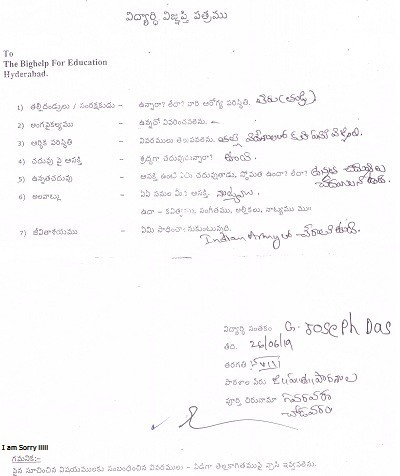 విద్యార్థి విజ్ఞప్తి పత్రము
To
The Bighelp For Education
Hyderabad.
1) తల్లిదండ్రులు / సంరక్షకుడు - ఉన్నారా? లేదా? వారి ఆరోగ్య పరిస్థితి. లేరు (తండ్రి)
2) అంగవైకల్యము - ఉన్నచో వివరించవలెను.
3) ఆర్థిక పరిస్థితి - వివరములు తెలుపవలెను.
4) చదువు పై ఆసక్తి - శ్రద్ధగా చదువుచున్నారా? ఉంది.
5) ఉన్నతచదువు - ఆసక్తి ఉంటే ఏమి చదువుతాడు, స్తోమత ఉందా? లేదా?
6) అలవాట్లు - ఏఏ పనుల మీద ఆసక్తి.
ఉదా - కవిత్వాలు, సంగీతము, అల్లికలు, నాట్యము మొ॥
7) జీవితాశయము - ఏమి సాధించాలనుకుంటున్నది. Indian Army లో చేరాలని ఉంది.
విద్యార్థి సంతకం G. Joseph Das
తేది. 26/06/19
తరగతి VIII
పాఠశాల పేరు
పూర్తి చిరునామా గవరవరం
చోడవరం
I am Sorry lllll
గమనిక:-
పైన సూచించిన విషయములకు సంబంధించిన వివరములు - విడిగా తెల్లకాగితముపై వ్రాసి ఇవ్వవలెను.